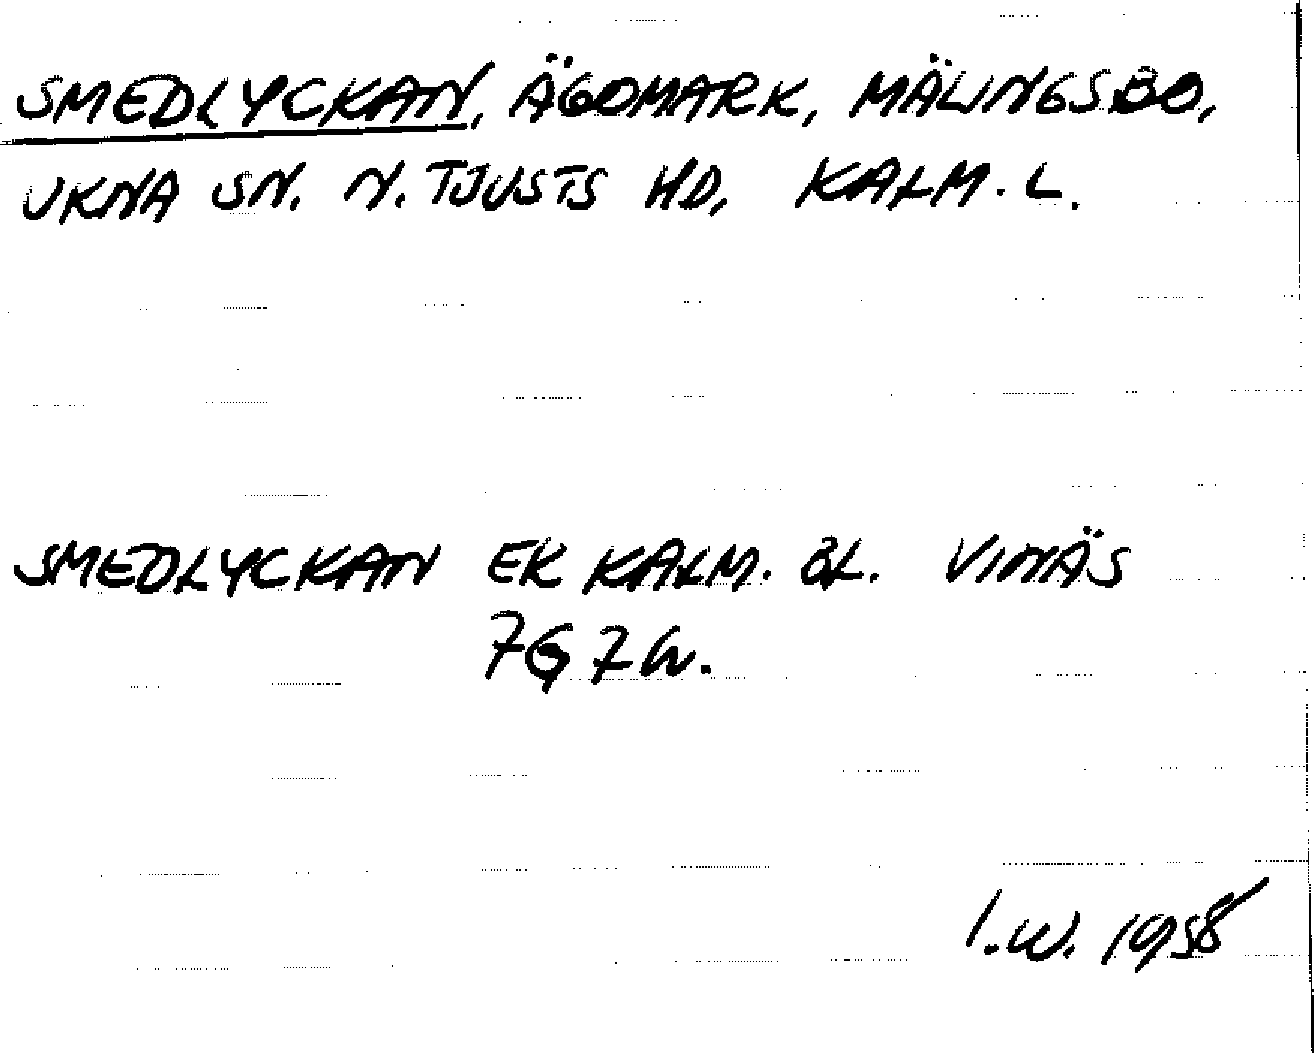 SMEDLYCKAN, ÄGOMARK, MÄLINGSBO,
UKNA SN. N. TJUSTS HD, KALM. L.
SMEDLYCKAN EK KALM. BL. VINÄS
7G 7h.
I.W. 1958